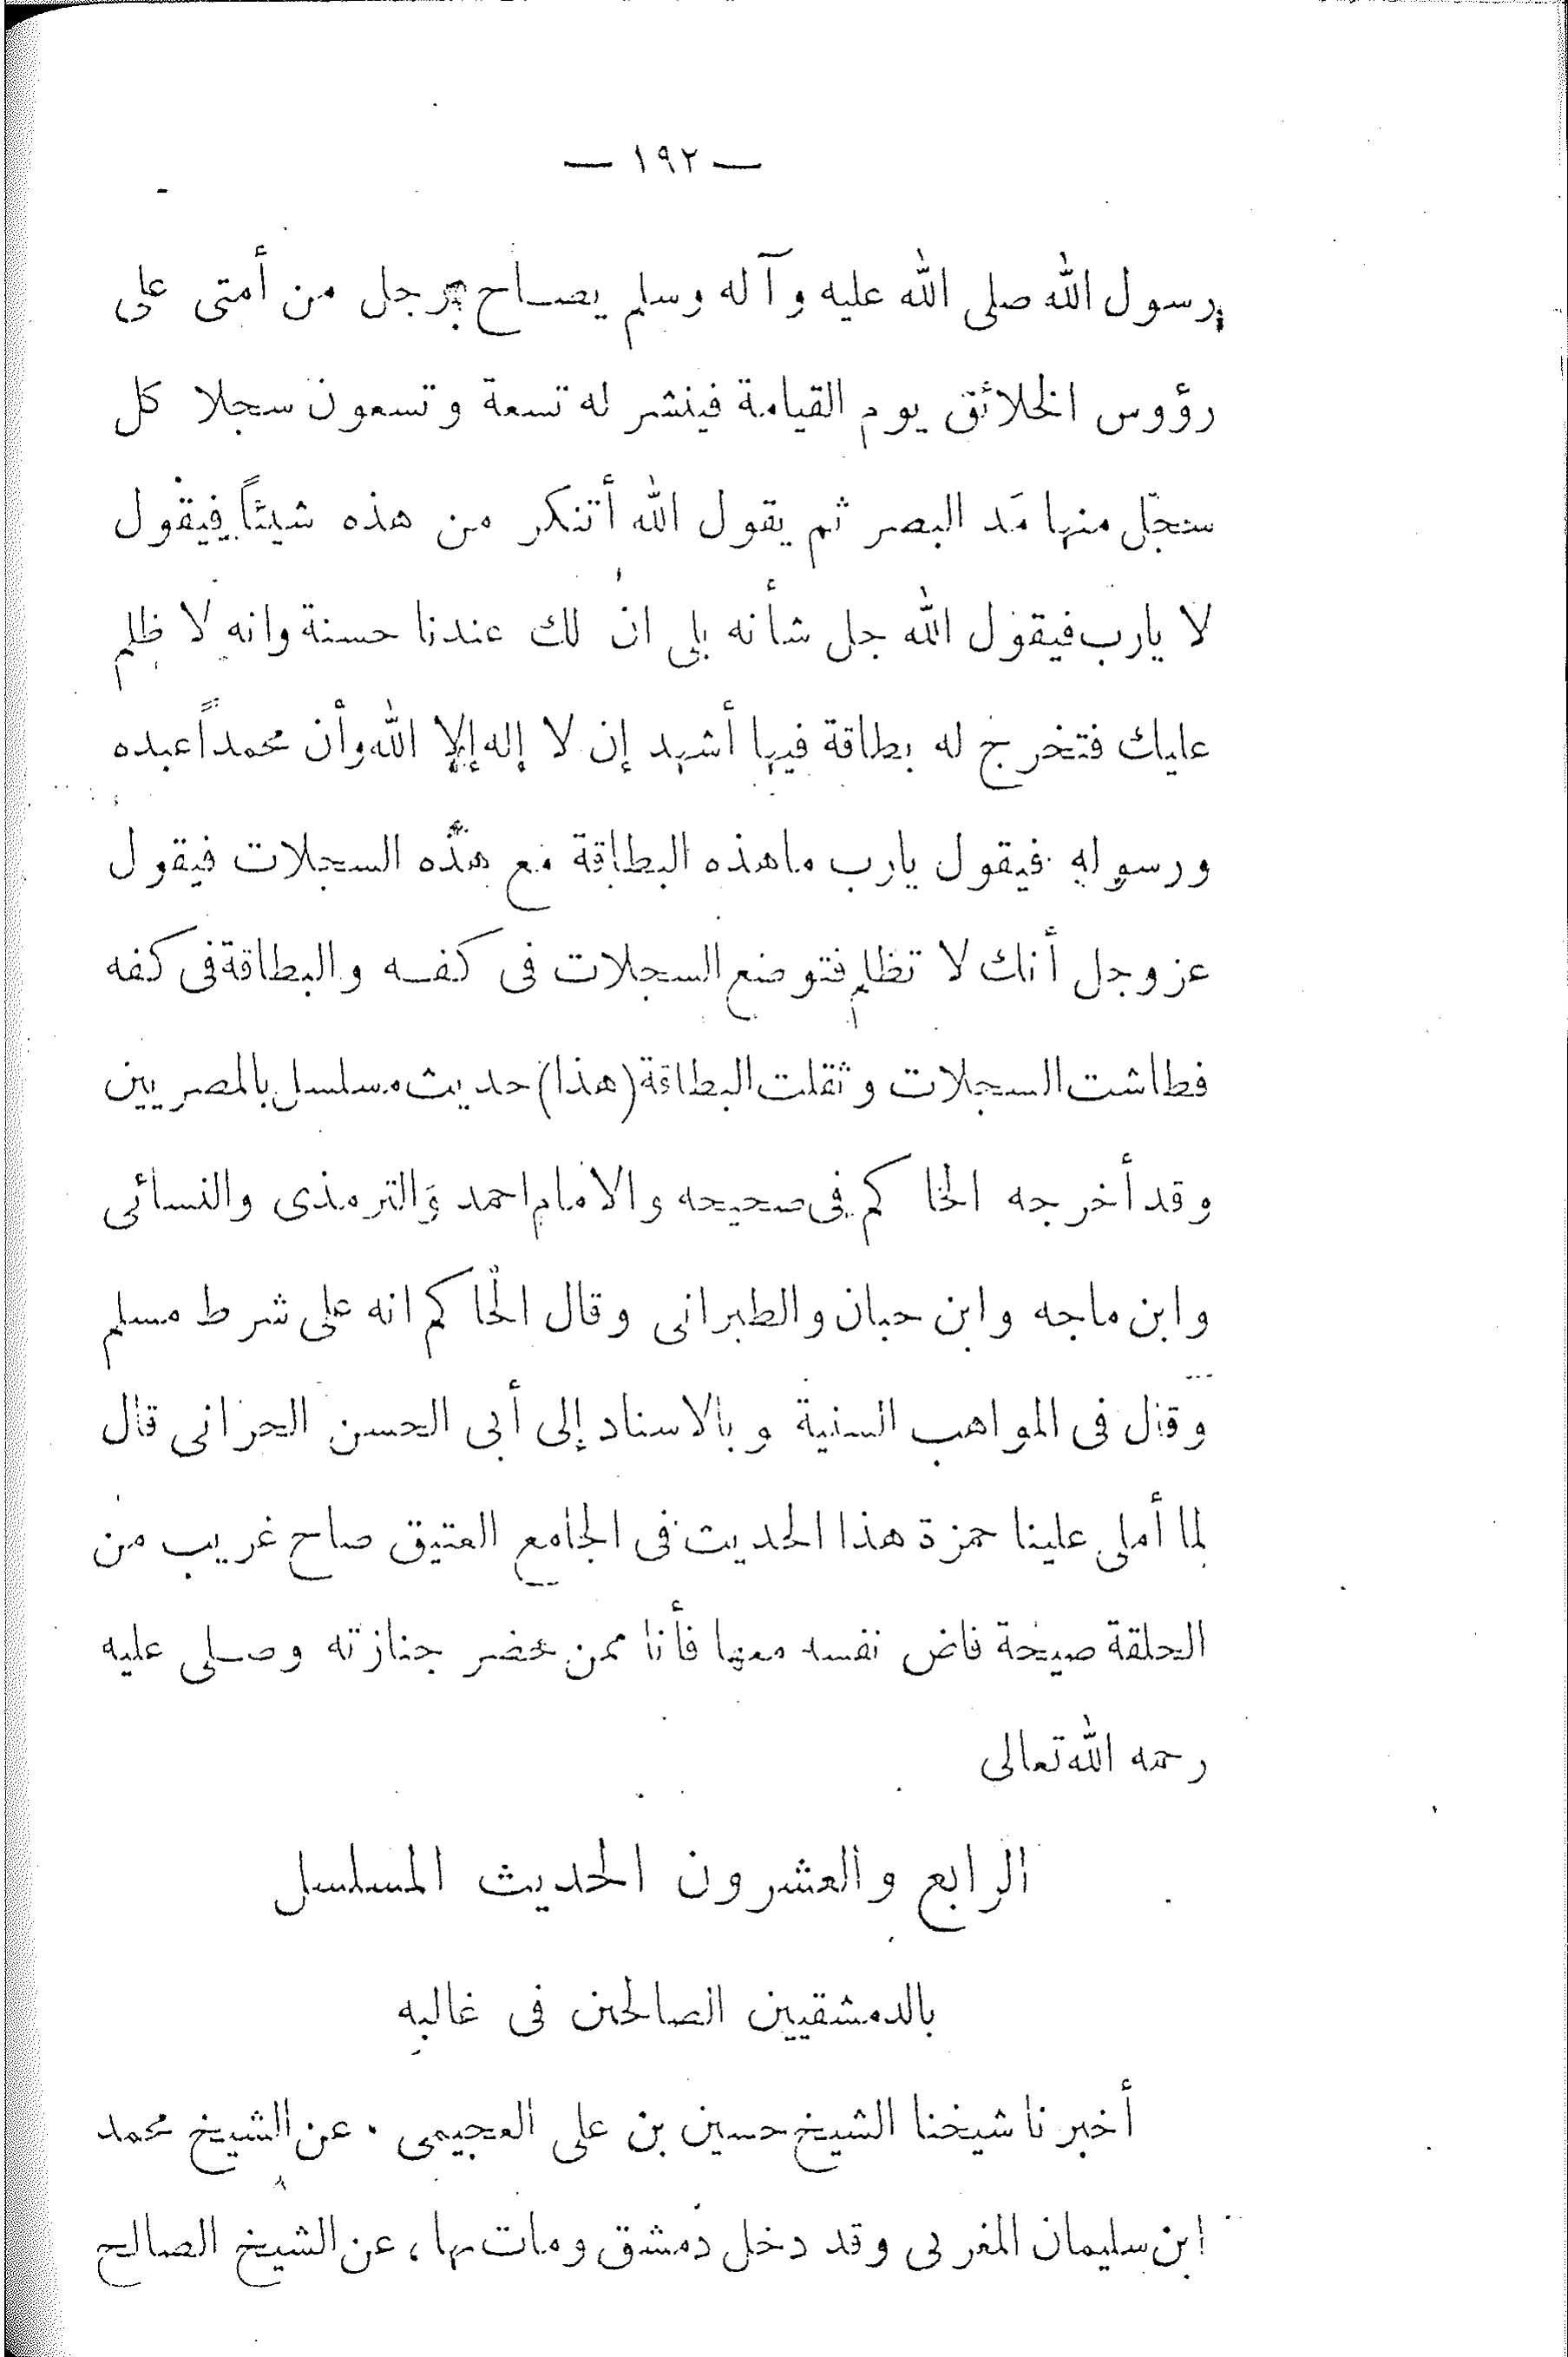 — ١٩٢ —
رسول الله صلى الله عليه وآله وسلم يصاح برجل من أمتى على
رؤوس الخلائق يوم القيامة فينشر له تسعة وتسعون سجلا كل
سجّل منها مَد البصر ثم يقول الله أتنكر من هذه شيئاً فيقول
لا يارب فيقول الله جل شأنه بلى ان لك عندنا حسنة وانه لا ظلم
عليك فتخرج له بطاقة فيها أشهد إن لا إله إلا الله وأن محمداً عبده
ورسوله فيقول يارب ماهذه البطاقة مع هذه السجلات فيقول
عز وجل أنك لا تظلم فتوضع السجلات فى كفه والبطاقة فى كفه
فطاشت السجلات وثقلت البطاقة (هذا) حديث مسلسل بالمصريين
وقد أخرجه الحاكم فى صحيحه والامام احمد والترمذى والنسائى
وابن ماجه وابن حبان والطبرانى وقال الحاكم انه على شرط مسلم
وقال فى المواهب السنية وبالاسناد إلى أبى الحسن الحرانى قال
لما أملى علينا حمزة هذا الحديث فى الجامع العتيق صاح غريب من
الحلقة صيحة فاض نفسه معها فأنا ممن حضر جنازته وصلى عليه
رحمه الله تعالى
الرابع والعشرون الحديث المسلسل
بالدمشقيين الصالحين فى غالبه
أخبرنا شيخنا الشيخ حسين بن على العجيمى . عن الشيخ محمد
ابن سليمان المغربى وقد دخل دمشق ومات بها ، عن الشيخ الصالح